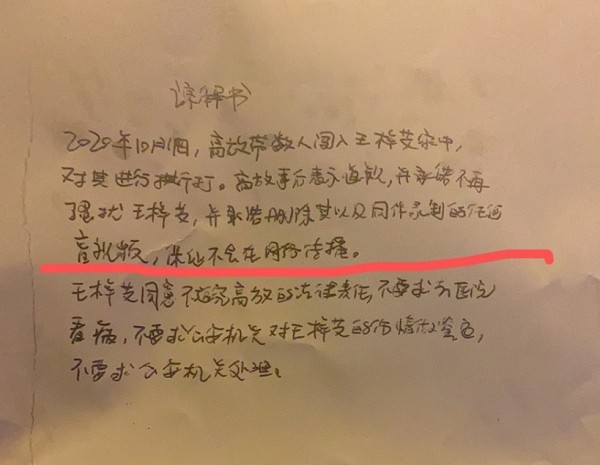 谅解书
2020年10月1日，高放带数人闯入王梓芠家中，
对其进行拼打。高放事后表示道歉，并承诺不再
骚扰王梓芠，并承诺删除其以及同伴录制的任何
音视频，保证不会在网络传播。
王梓芠同意不追究高放的法律责任，不要求去医院
看病，不要求公安机关对王梓芠的伤情做鉴定，
不要求公安机关处理。